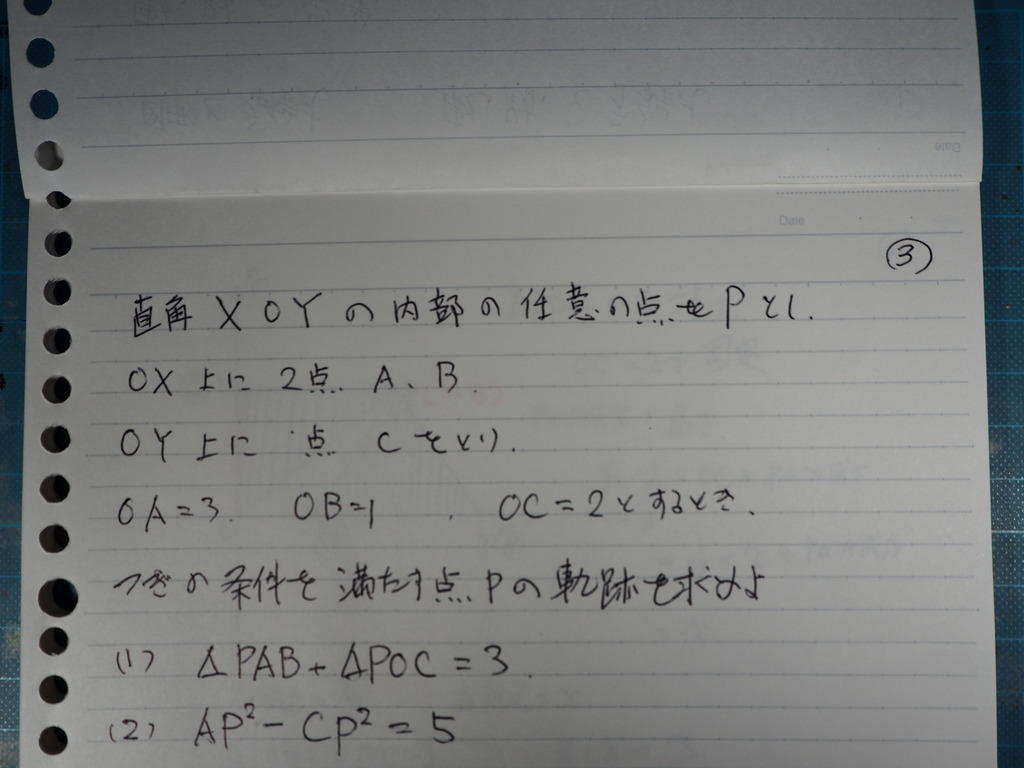 Date
Date
③
直角 XOY の内部の任意の点を P とし.
OX 上に 2点 A、B.
OY 上に 点 C をとり.
OA=3. OB=1 . OC=2 とするとき.
つぎの条件を満たす点 P の軌跡を求めよ
(1) △PAB+△POC=3.
(2) AP²-CP²=5